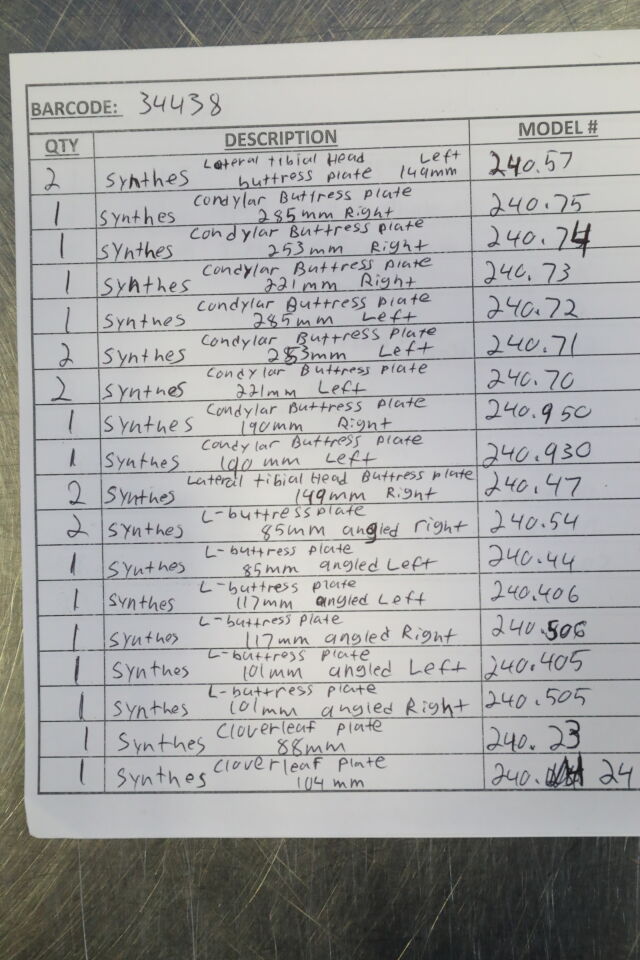 BARCODE: 34438
QTY DESCRIPTION MODEL #
2 Synthes Lateral tibial Head Left 240.57
buttress plate 149mm
1 Synthes Condylar Buttress plate 240.75
285mm Right
1 Synthes Condylar Buttress plate 240.74
253mm Right
1 Synthes Condylar Buttress plate 240.73
221mm Right
1 Synthes Condylar Buttress plate 240.72
285mm Left
2 Synthes Condylar Buttress Plate 240.71
253mm Left
2 Synthes Condylar Buttress plate 240.70
221mm Left
1 Synthes Condylar Buttress Plate 240.950
190mm Right
1 Synthes Condylar Buttress plate 240.930
190mm Left
2 Synthes Lateral tibial Head Buttress plate 240.47
149mm Right
2 Synthes L-buttress plate 240.54
85mm angled right
1 Synthes L-buttress plate 240.44
85mm angled Left
1 Synthes L-buttress plate 240.406
117mm angled Left
1 Synthes L-buttress plate 240.506
117mm angled Right
1 Synthes L-buttress plate 240.405
101mm angled Left
1 Synthes L-buttress plate 240.505
101mm angled Right
1 Synthes Cloverleaf plate 240.23
88mm
1 Synthes Cloverleaf Plate 240. 24
104mm